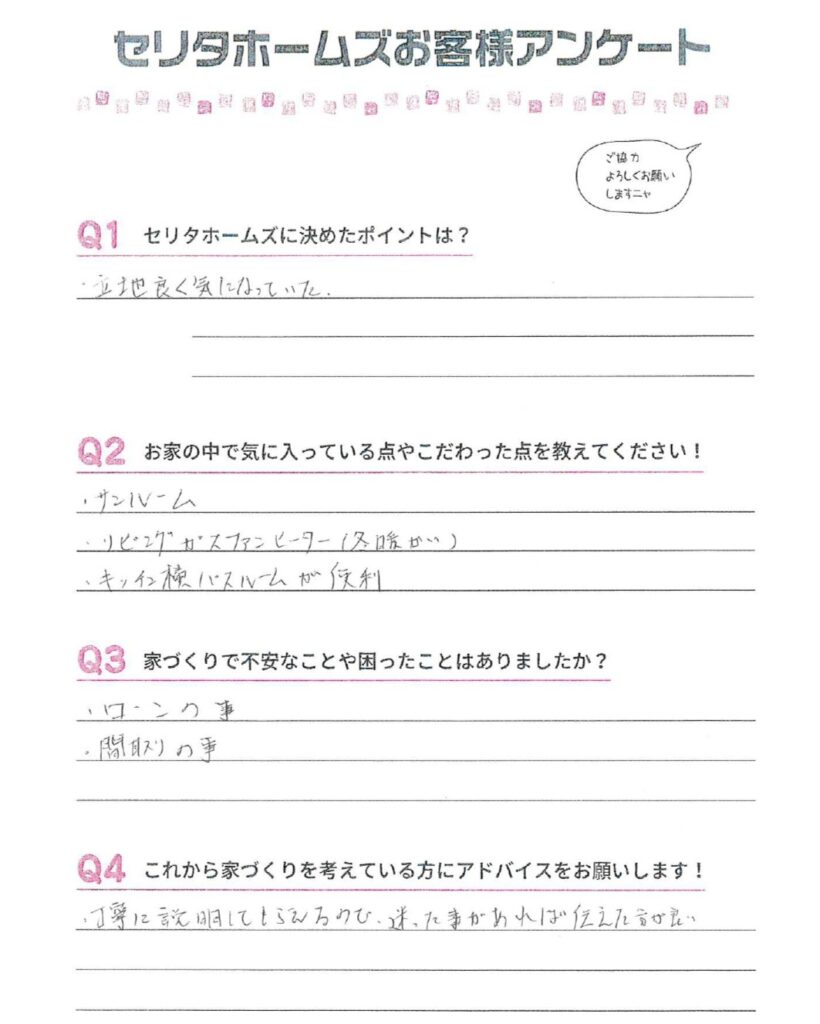 セリタホームズお客様アンケート
ご協力
よろしくお願い
しますニャ
Q1 セリタホームズに決めたポイントは？
・立地良く気になっていた.
Q2 お家の中で気に入っている点やこだわった点を教えてください！
・サンルーム
・リビングガスファンヒーター(冬暖かい)
・キッチン横バスルームが便利
Q3 家づくりで不安なことや困ったことはありましたか？
・ローンの事
・間取りの事
Q4 これから家づくりを考えている方にアドバイスをお願いします！
・丁寧に説明してもらえるので、迷った事があれば伝えた方が良い